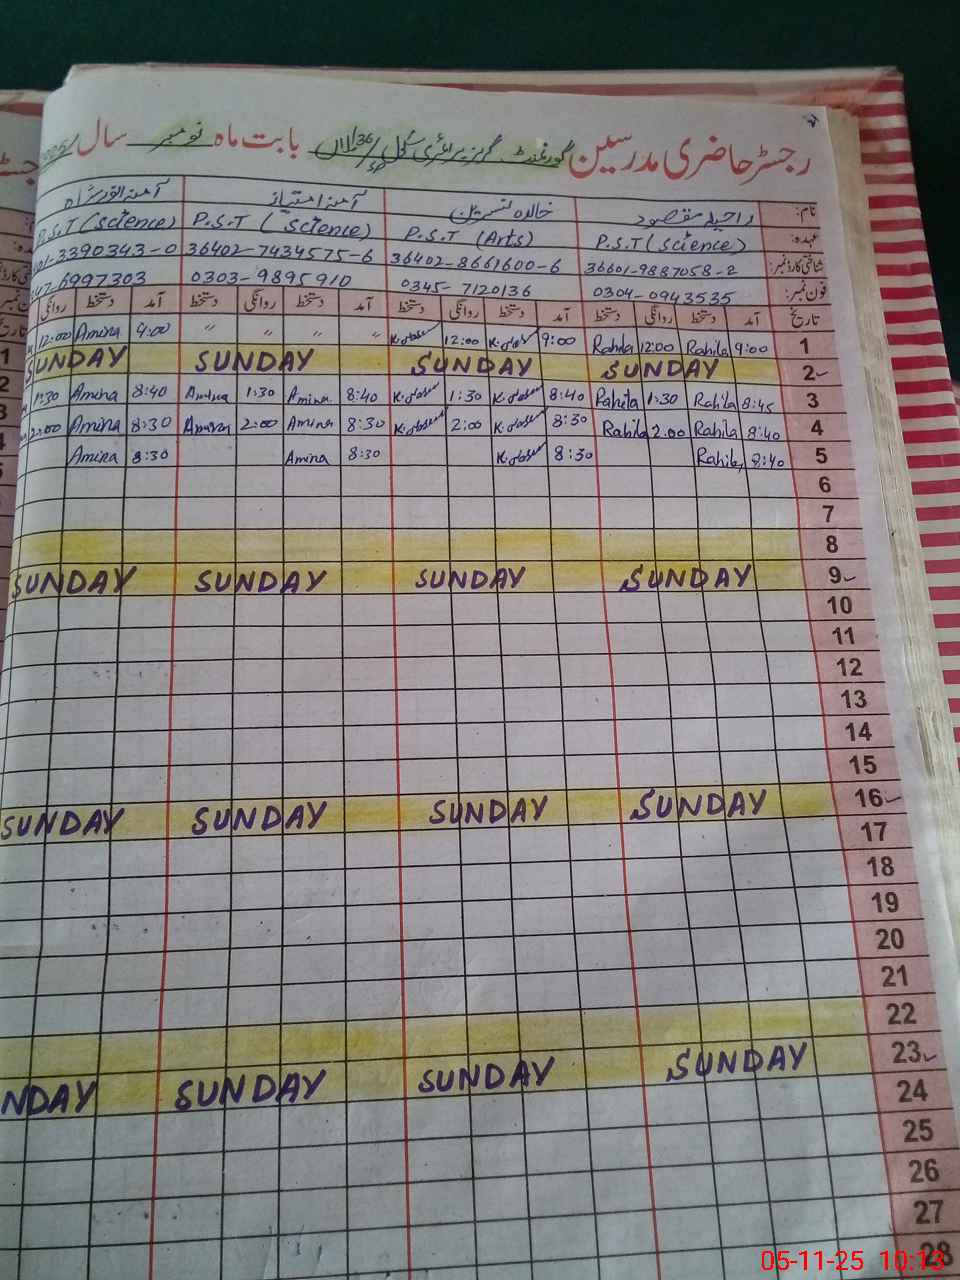 رجسٹر حاضری مدرسین گورنمنٹ گرلز پرائمری سکول 36/SP بابت ماہ نومبر سال
نام: راحیلہ مقصود خالدہ نسرین آمنہ امتیاز آمنہ
عہدہ: P.S.T (Science) P.S.T (Arts) P.S.T (Science) P.S.T (Science)
شناختی کارڈ نمبر: 36601-9887058-2 36402-8661600-6 36402-7434575-6 01-3390343-0
فون نمبر: 0304-0943535 0345-7120136 0303-9895910 47-6997303
تاریخ آمد دستخط روانگی دستخط آمد دستخط روانگی دستخط آمد دستخط روانگی دستخط آمد دستخط روانگی
1 9:00 Rahila 12:00 Rahila 9:00 12:00 " " " " 9:00 Amina 12:00
2 SUNDAY SUNDAY SUNDAY SUNDAY
3 8:45 Rahila 1:30 Rahila 8:40 1:30 8:40 Amina 1:30 Amina 8:40 Amina 1:30
4 8:40 Rahila 2:00 Rahila 8:30 2:00 8:30 Amina 2:00 Amina 8:30 Amina 2:00
5 8:40 Rahila 8:30 8:30 Amina 8:30 Amina
6
7
8
9 SUNDAY SUNDAY SUNDAY SUNDAY
10
11
12
13
14
15
16 SUNDAY SUNDAY SUNDAY SUNDAY
17
18
19
20
21
22
23 SUNDAY SUNDAY SUNDAY NDAY
24
25
26
27
28
05-11-25 10:13